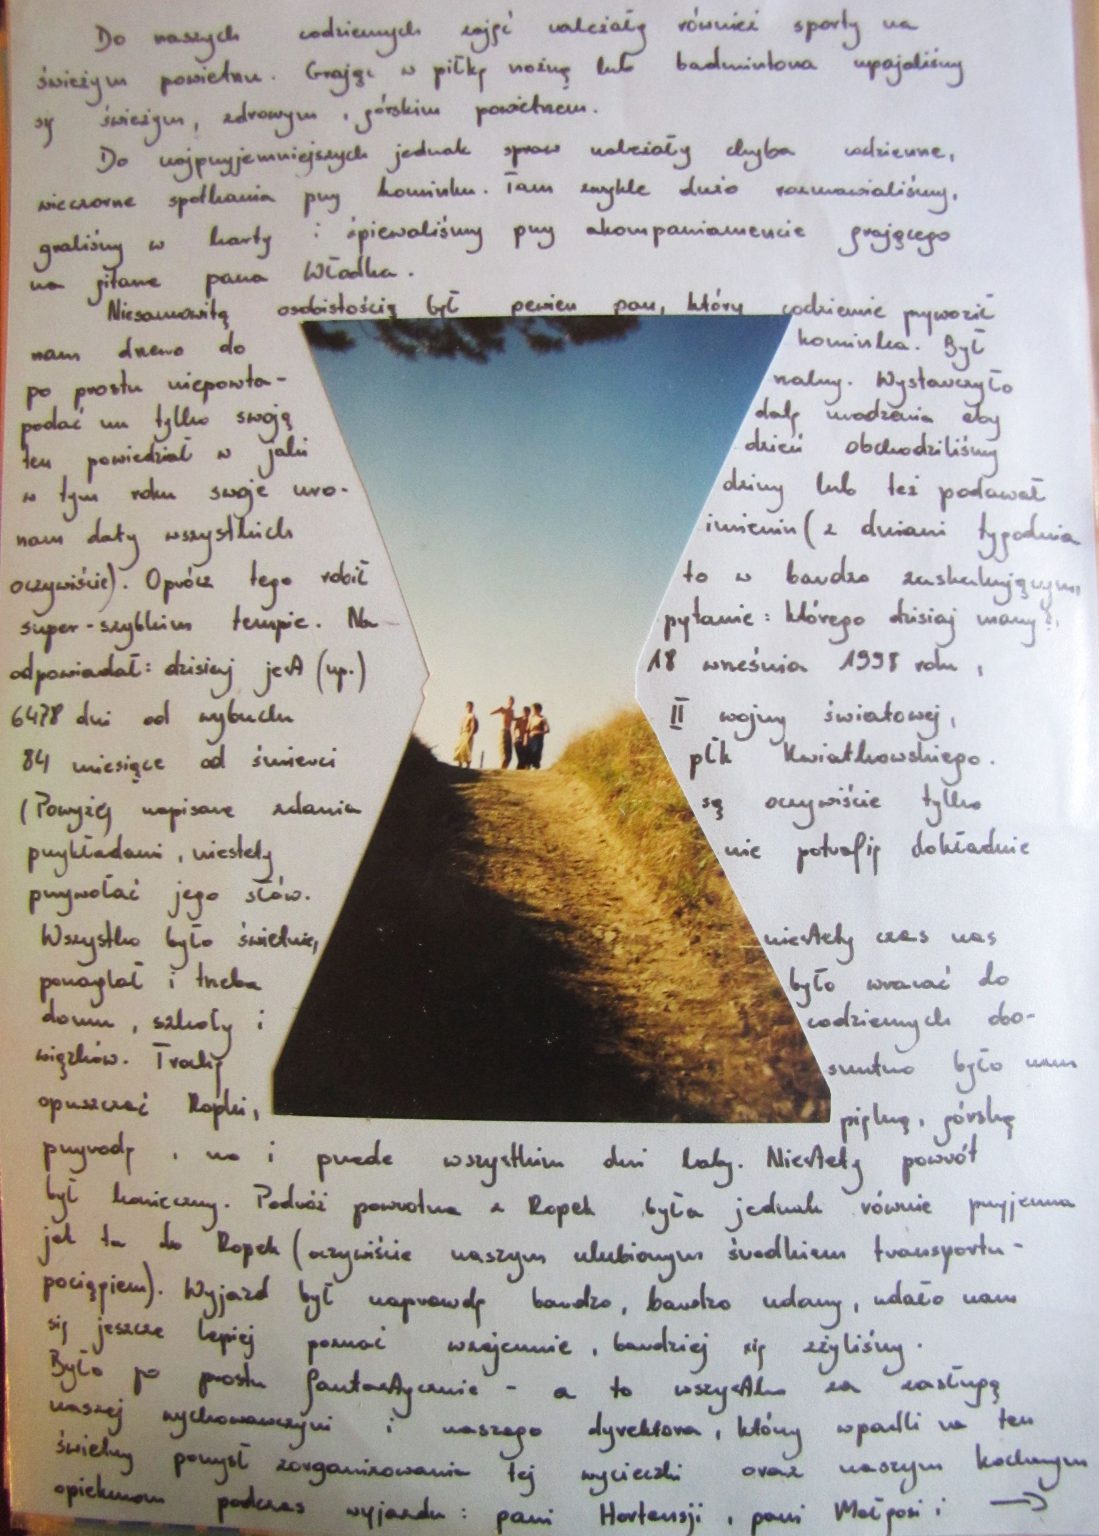 Do naszych codziennych zajęć należały również sporty na
świeżym powietrzu. Grając w piłkę nożną lub badmintona upajaliśmy
się świeżym, zdrowym, górskim powietrzem.
Do najprzyjemniejszych jednak spraw należały chyba codzienne,
wieczorne spotkania przy kominku. Tam zwykle dużo rozmawialiśmy,
graliśmy w karty i śpiewaliśmy przy akompaniamencie grającego
na gitarze pana Władka.
Niesamowitą osobistością był pewien pan, który codziennie przywoził
nam drzewo do kominka. Był
po prostu niepowta- rzalny. Wystarczyło
podać mu tylko swoją datę urodzenia aby
ten powiedział w jaki dzień obchodziliśmy
w tym roku swoje uro- dziny lub też podawał
nam daty wszystkich imienin (z dniami tygodnia
oczywiście). Oprócz tego robił to w bardzo zaskakującym,
super-szybkim tempie. Na pytanie: którego dzisiaj mamy?,
odpowiadał: dzisiaj jest (np.) 18 września 1998 roku,
6478 dni od wybuchu II wojny światowej,
84 miesiące od śmierci płk Kwiatkowskiego.
(Powyżej napisane zdania są oczywiście tylko
przykładami, niestety nie potrafię dokładnie
przywołać jego słów.
Wszystko było świetnie, niestety czas nas
ponaglał i trzeba było wracać do
domu, szkoły i codziennych obo-
wiązków. Trochę smutno było nam
opuszczać Ropki, piękną, górską
przyrodę, no i przede wszystkim dni laby. Niestety powrót
był konieczny. Podróż powrotna z Ropek była jednak równie przyjemna
jak ta do Ropek (oczywiście naszym ulubionym środkiem transportu -
pociągiem). Wyjazd był naprawdę bardzo, bardzo udany, udało nam
się jeszcze lepiej poznać wzajemnie, bardziej się zżyliśmy.
Było po prostu fantastycznie - a to wszystko za zasługą
naszej wychowawczyni i naszego dyrektora, który wpadli na ten
świetny pomysł zorganizowania tej wycieczki oraz naszym kochanym
opiekunom podczas wyjazdu: pani Hortensji, pani Małgosi i →